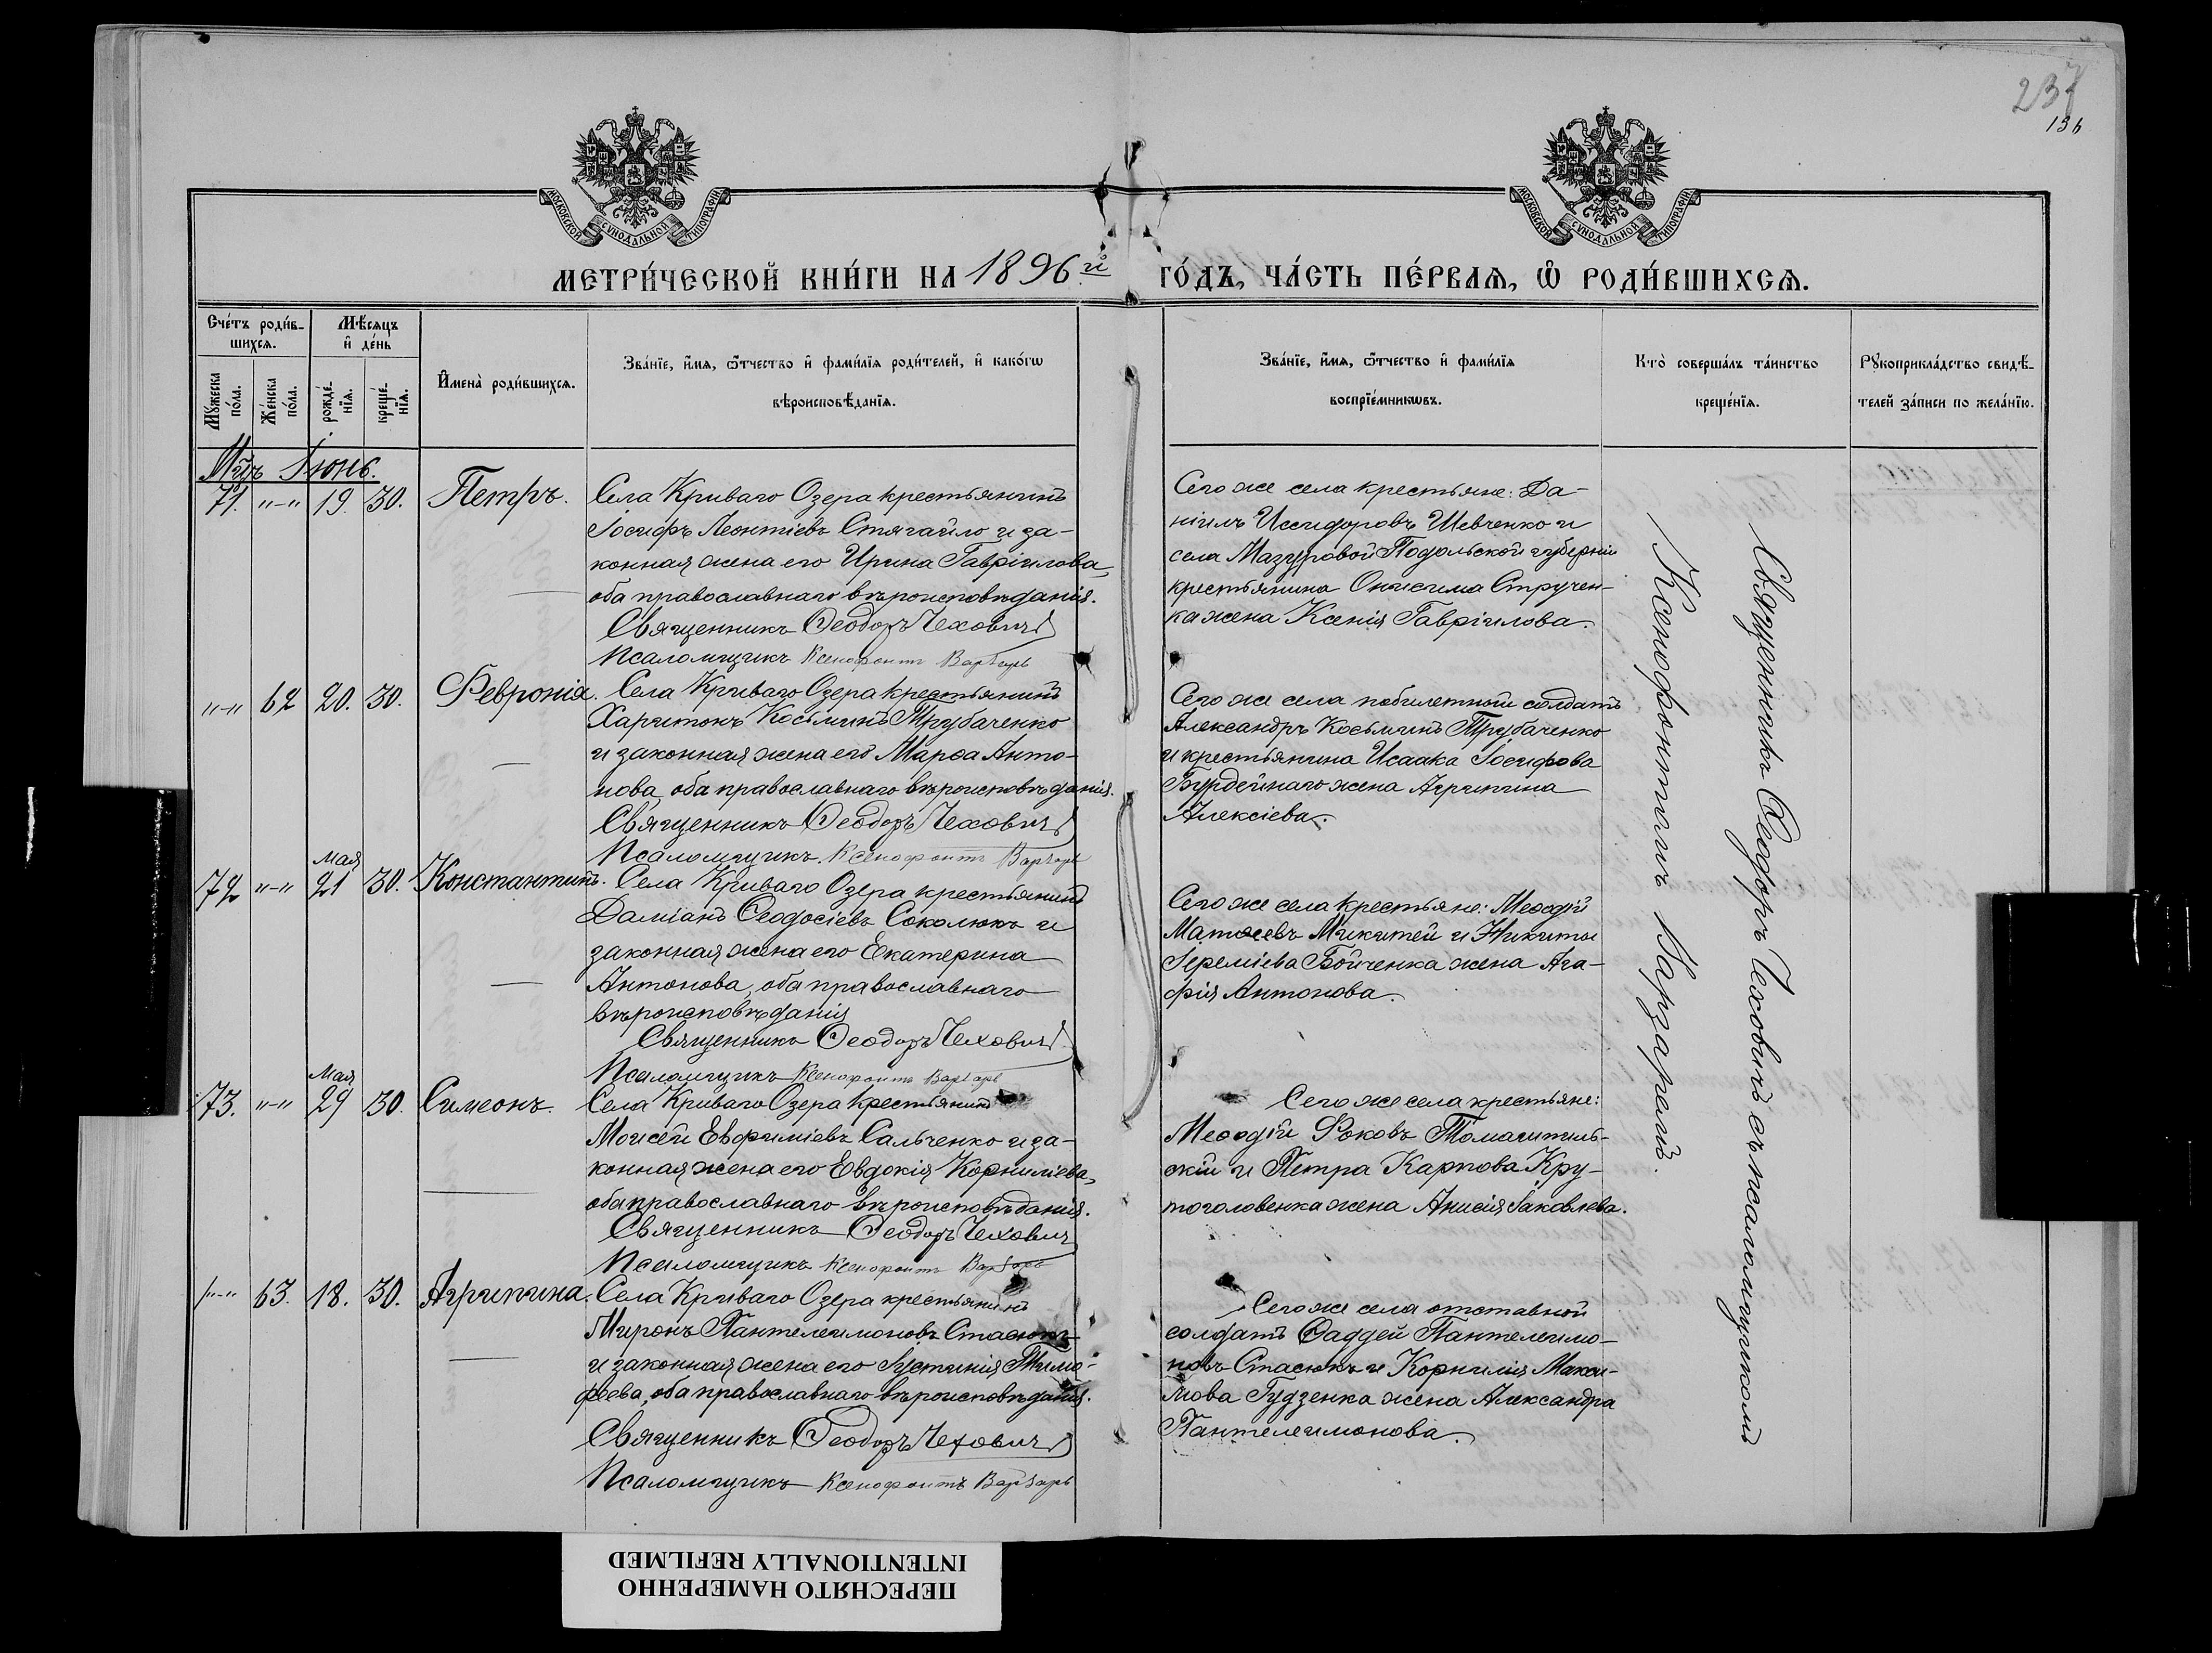 237
136
МОСКОВСКОЙ СѴНОДАЛЬНОЙ ТИПОГРАФІИ
МОСКОВСКОЙ СѴНОДАЛЬНОЙ ТИПОГРАФІИ
МЕТРИ́ЧЕСКОЙ КНИ́ГИ НА 1896.й ГО́ДЪ, ЧА́СТЬ ПЕ́РВАѦ, Ѽ РОДИ́ВШИХСѦ.
Сче́тъ роди́в-
шихсѧ.
Мѣ́сѧцъ
и҆ де́нь
Мꙋ́жеска
по́ла.
Же́нска
по́ла.
рожде́-
нїѧ.
креще́-
нїѧ.
И҆мена̀ роди́вшихсѧ.
Зва́нїе, и҆́мѧ, ѻ҆́тчество и҆ фами́лїѧ роди́телей, и҆ како́гѡ
вѣроисповѣ́данїѧ.
Зва́нїе, и҆́мѧ, ѻ҆́тчество и҆ фами́лїѧ
воспрїе́мникѡвъ.
Кто̀ соверша́лъ та́инство
креще́нїѧ.
Рꙋкоприкла́дство свидѣ́-
телей за́писи по жела́нїю.
Мцъ Іюнь.
71. "-" 19. 30. Петръ.
Села Криваго Озера крестьянинъ
Іосифъ Леонтіевъ Стягайло и за-
конная жена его Ирина Гавріилова,
оба православнаго вѣроисповѣданія.
Священникъ Ѳеодоръ Чеховичъ
Псаломщикъ Ксенофонтъ Варзарь
Сего же села крестьяне: Да-
ніилъ Иссидоровъ Шевченко и
села Мазуровой Подольской губерніи
крестьянина Онисима Стручен-
ка жена Ксенія Гавріилова.
"-" 62 20. 30. Февронія.
Села Криваго Озера крестьянинъ
Харитонъ Косьминъ Трубаченко
и законная жена его Марѳа Анто-
нова, оба православнаго вѣроисповѣданія.
Священникъ Ѳеодоръ Чеховичъ
Псаломщикъ Ксенофонтъ Варзарь
Сего же села побилетный солдатъ
Александръ Косьминъ Трубаченко
и крестьянина Исаака Іосифова
Бурдейнаго жена Агрипина
Алексіева.
72 "-" Мая 21 30. Константинъ.
Села Криваго Озера крестьянинъ
Даміанъ Ѳеодосіевъ Соколюкъ и
законная жена его Екатерина
Антонова, оба православнаго
вѣроисповѣданія
Священникъ Ѳеодоръ Чеховичъ
Псаломщикъ Ксенофонтъ Варзарь
Сего же села крестьяне: Меѳодій
Матѳеевъ Микитей и Никиты
Іереміева Бойченка жена Ага-
фія Антонова.
73. "-" Мая 29 30. Симеонъ.
Села Криваго Озера крестьянинъ
Моисей Евфиміевъ Сальченко и за-
конная жена его Евдокія Корниліева,
оба православнаго вѣроисповѣданія.
Священникъ Ѳеодоръ Чеховичъ
Псаломщикъ Ксенофонтъ Варзарь
Сего же села крестьяне:
Меѳодій Фоковъ Томашиль-
скій и Петра Карпова Кру-
тоголовенка жена Анисія Іаковлева.
"-" 63. 18. 30. Агрипина.
Села Криваго Озера крестьянинъ
Миронъ Пантелеимоновъ Стасюкъ
и законная жена его Іустинія Тимо-
феева, оба православнаго вѣроисповѣданія.
Священникъ Ѳеодоръ Чеховичъ
Псаломщикъ Ксенофонтъ Варзарь
Сего же села отставной
солдатъ Ѳаддей Пантелеимо-
новъ Стасюкъ и Корнилія Макси-
мова Гудзенка жена Александра
Пантелеимонова.
Священникъ Ѳеодоръ Чеховичъ съ псаломщикомъ
Ксенофонтомъ Варзаремъ.
ПЕРЕСНЯТО НАМЕРЕННО
INTENTIONALLY REFILMED